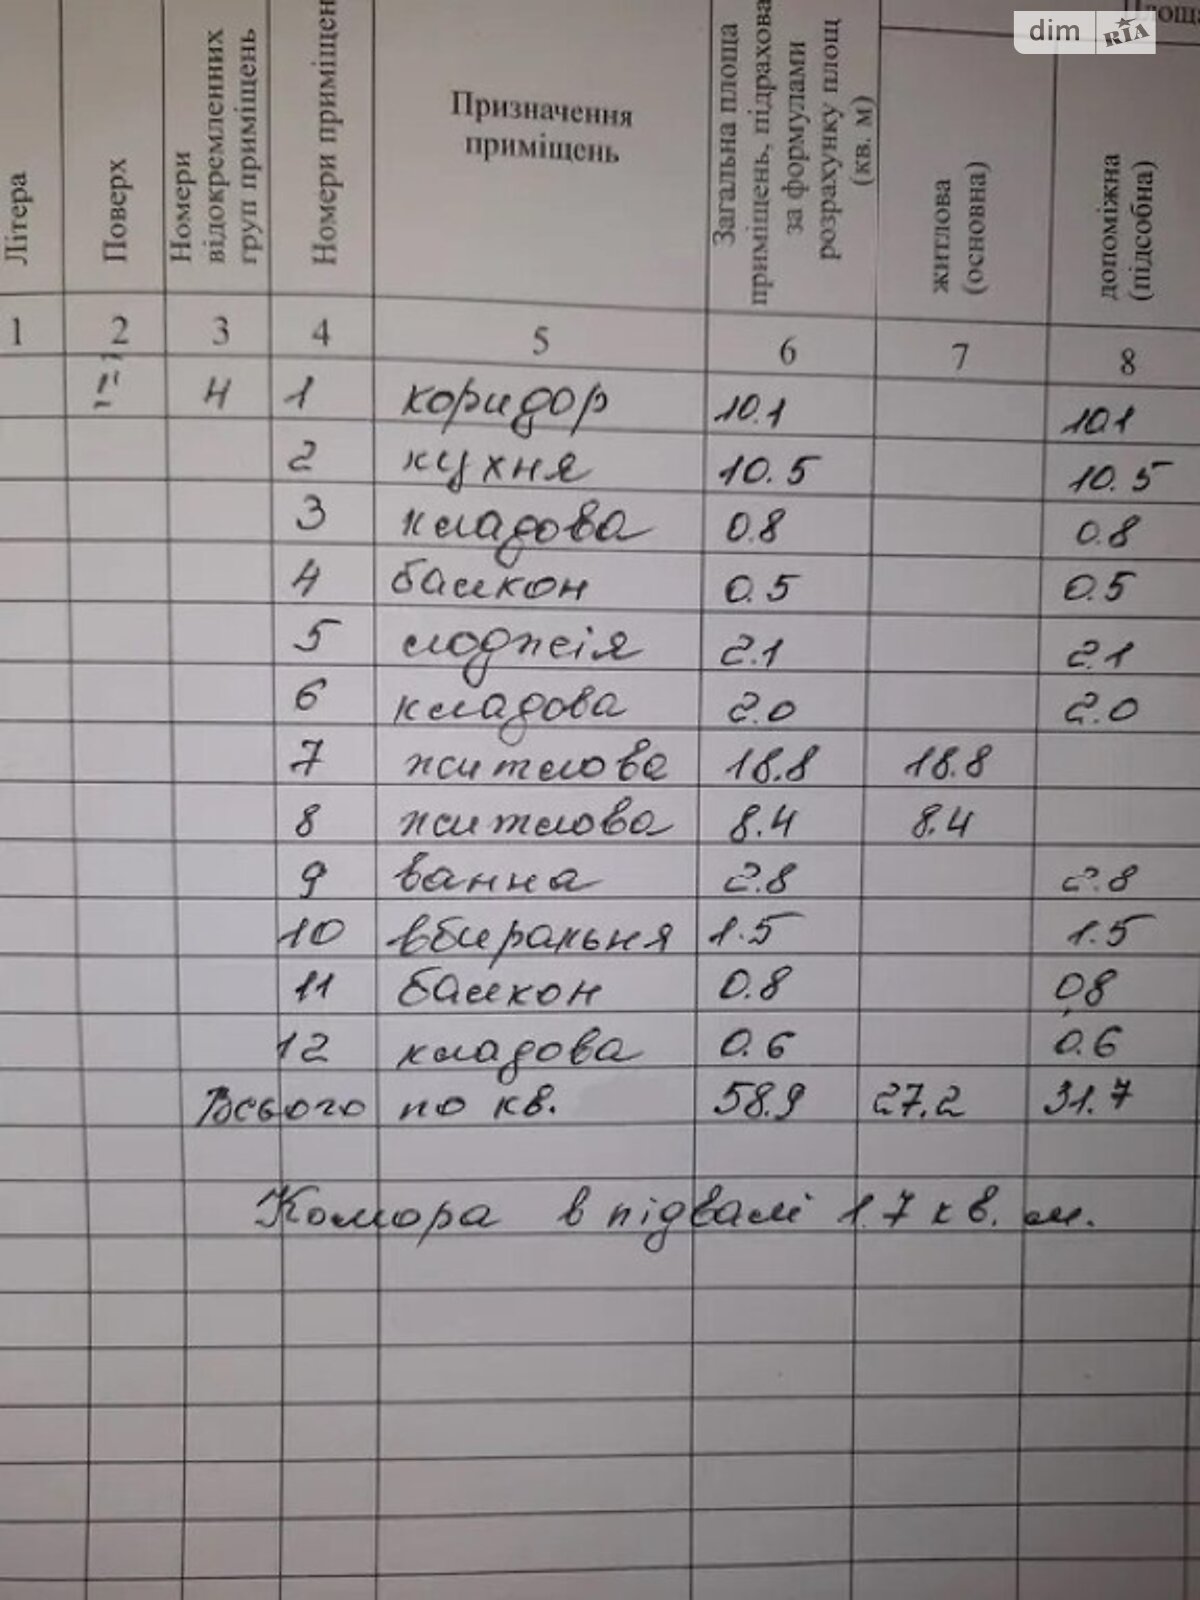 dim RIA
Площа
Літера
Поверх
Номери
відокремленних
груп приміщень
Номери приміщен
Призначення
приміщень
Загальна площа
приміщень, підрахова
за формулами
розрахунку площ
(кв. м)
житлова
(основна)
допоміжна
(підсобна)
1 2 3 4 5 6 7 8
4 1 коридор 10.1 10.1
2 кухня 10.5 10.5
3 кладова 0.8 0.8
4 балкон 0.5 0.5
5 лоджія 2.1 2.1
6 кладова 2.0 2.0
7 житлова 18.8 18.8
8 житлова 8.4 8.4
9 ванна 2.8 2.8
10 вбиральня 1.5 1.5
11 балкон 0.8 0.8
12 кладова 0.6 0.6
Всього по кв. 58.9 27.2 31.7
Комора в підвалі 1.7 кв. м.